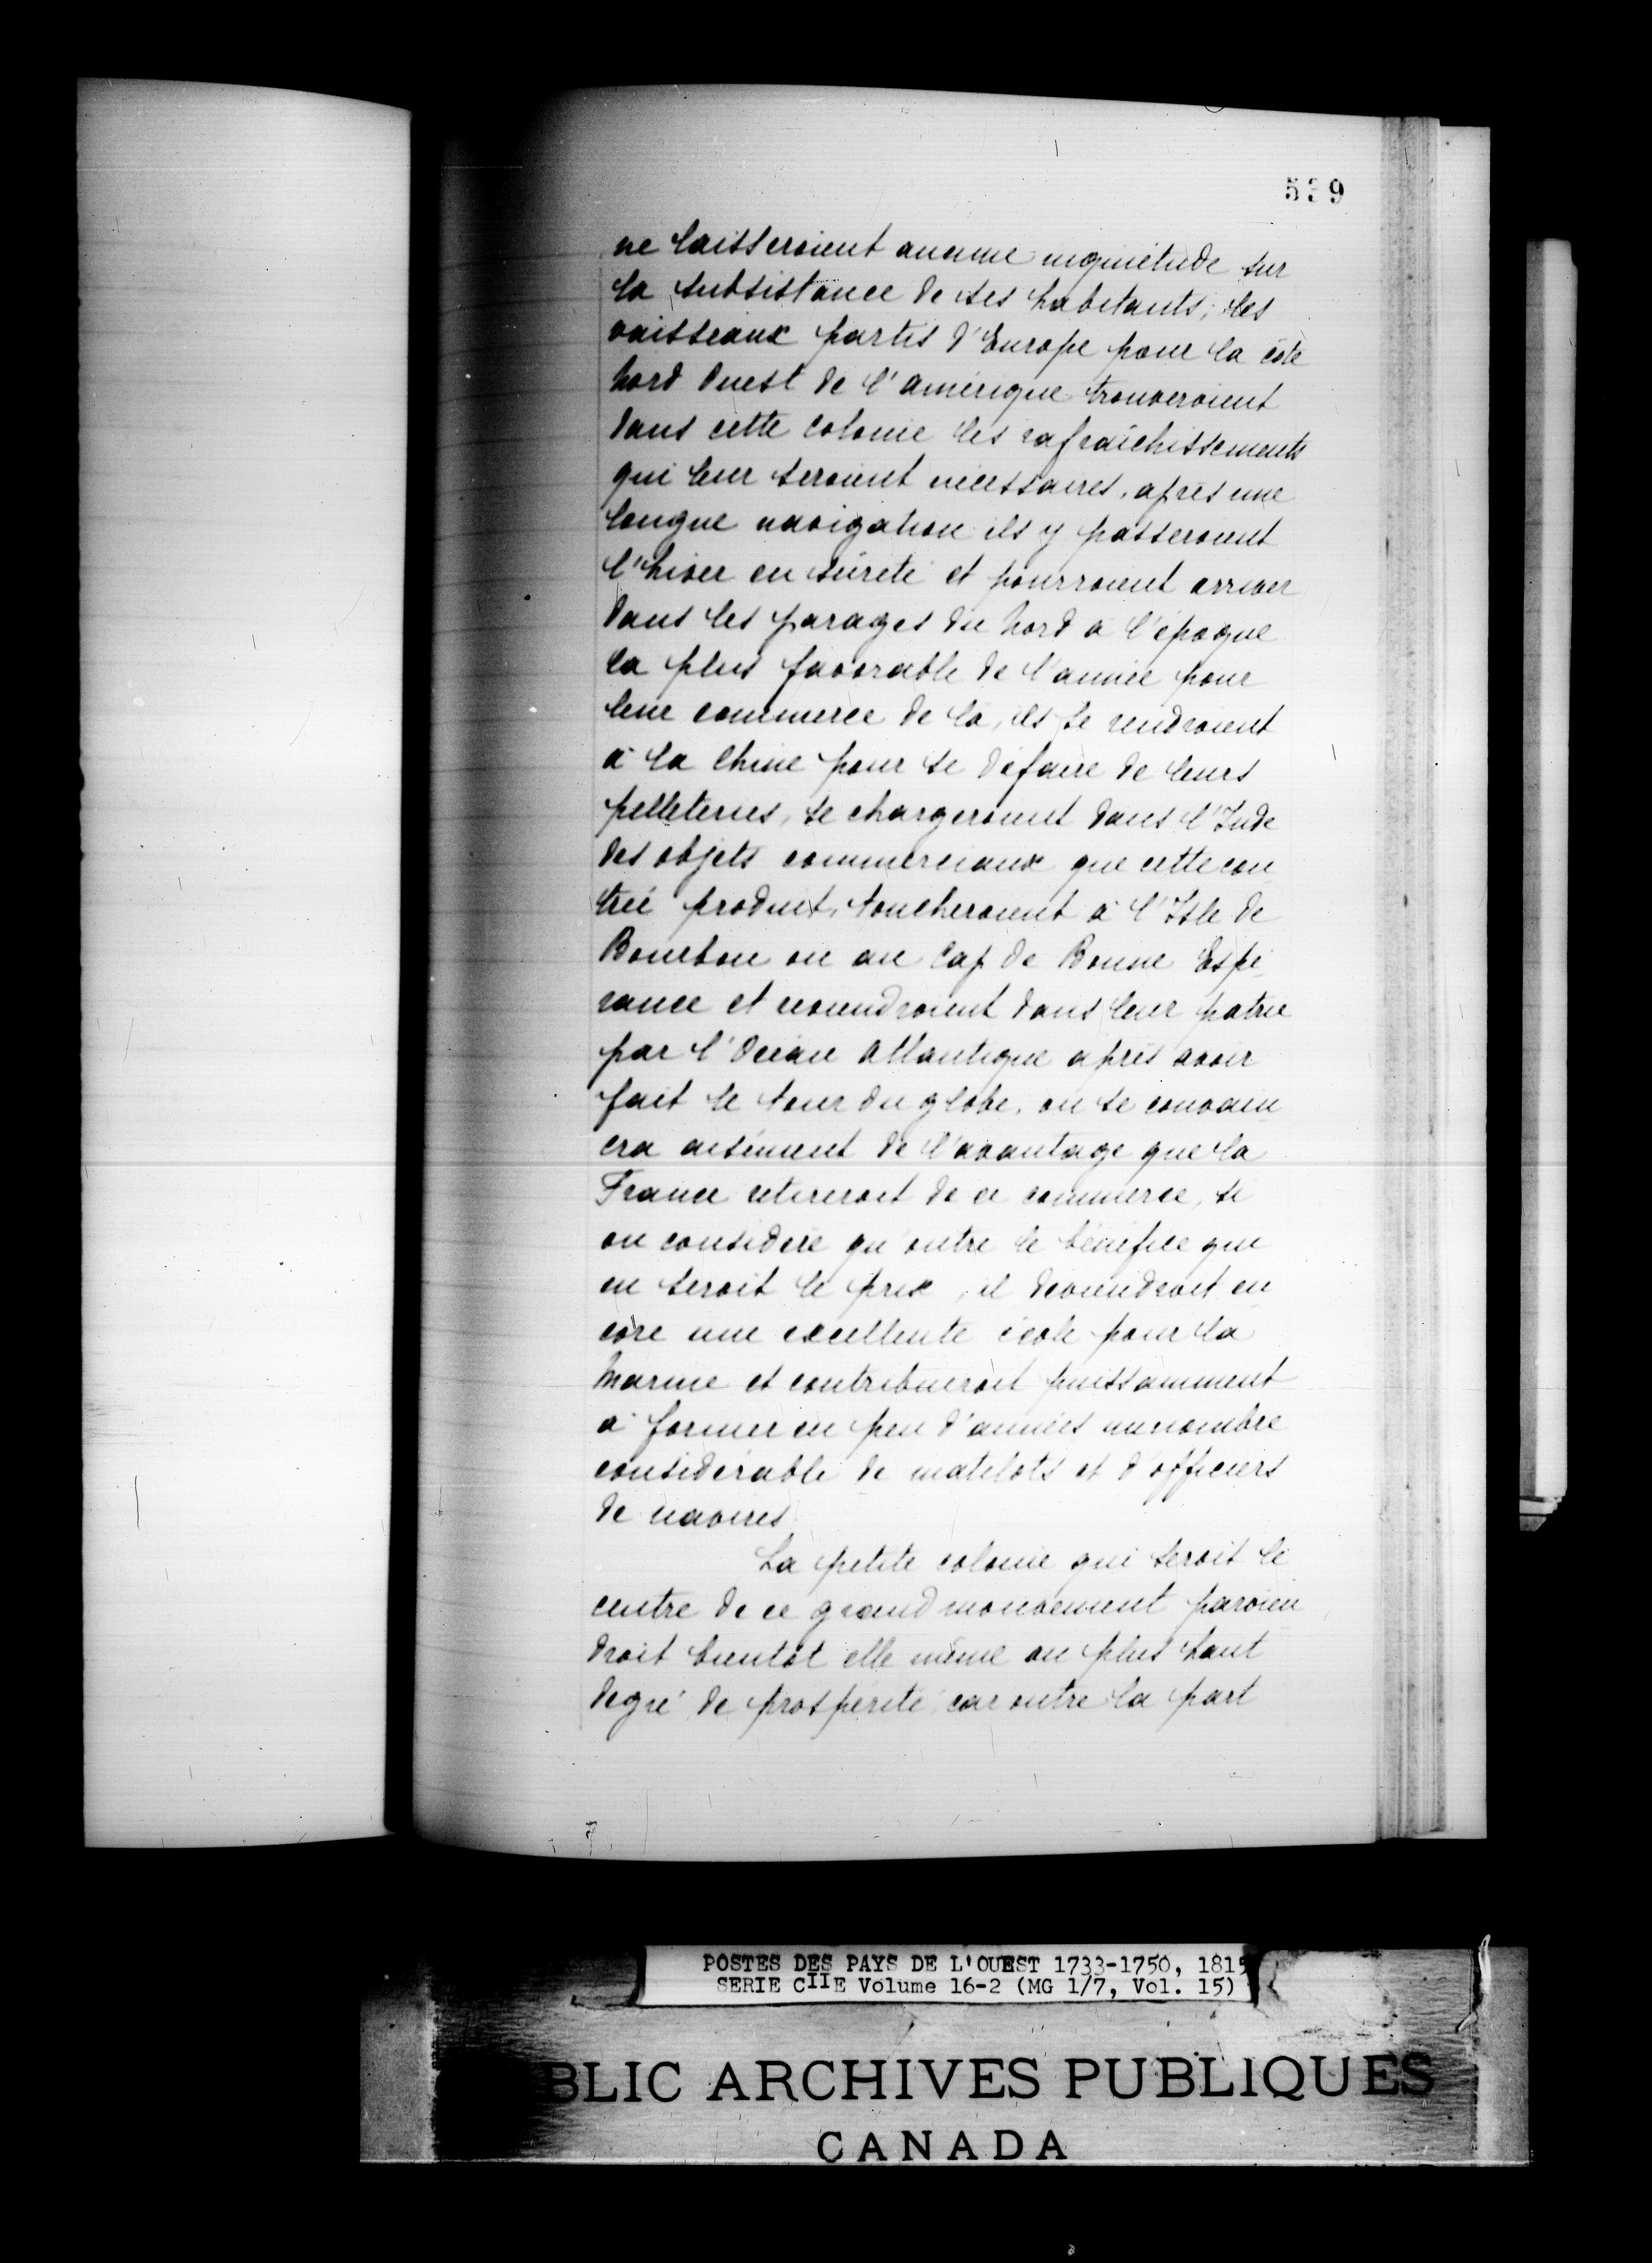 539
ne laisseroient aucune inquiétude sur
la subsistance de ses habitants; les
vaisseaux partis d'Europe pour la côte
Nord Ouest de l'amérique trouveroient
dans cette colonie les rafraîchissements
qui leur seroient nécessaires, après une
longue navigation ils y passeroient
l'hiver en sûreté et pourroient arriver
dans les parages du Nord à l'époque
la plus favorable de l'année pour
leur commerce de là, ils se rendroient
à la Chine pour se défaire de leurs
pelleteries, se chargeroient dans l'Inde
des objets commerciaux que cette con
trée produit, toucheroient à l'Isle de
Bourbon ou au Cap de Bonne Espé
rance et reviendroient dans leur patrie
par l'Océan Atlantique après avoir
fait le tour du globe, on se convain
cra aisément de l'avantage que la
France retireroit de ce commerce, si
on considère qu'outre le bénéfice qui
en seroit le prix, il deviendroit en
core une excellente école pour la
Marine et contribueroit puissamment
à former en peu d'années un nombre
considérable de matelots et d'officiers
de navires
La petite colonie qui seroit le
centre de ce grand mouvement parvien
droit bientôt elle même au plus haut
degré de prospérité car outre la part
POSTES DES PAYS DE L'OUEST 1733-1750, 1815
SERIE CIIE Volume 16-2 (MG 1/7, Vol. 15)
BLIC ARCHIVES PUBLIQUES
CANADA